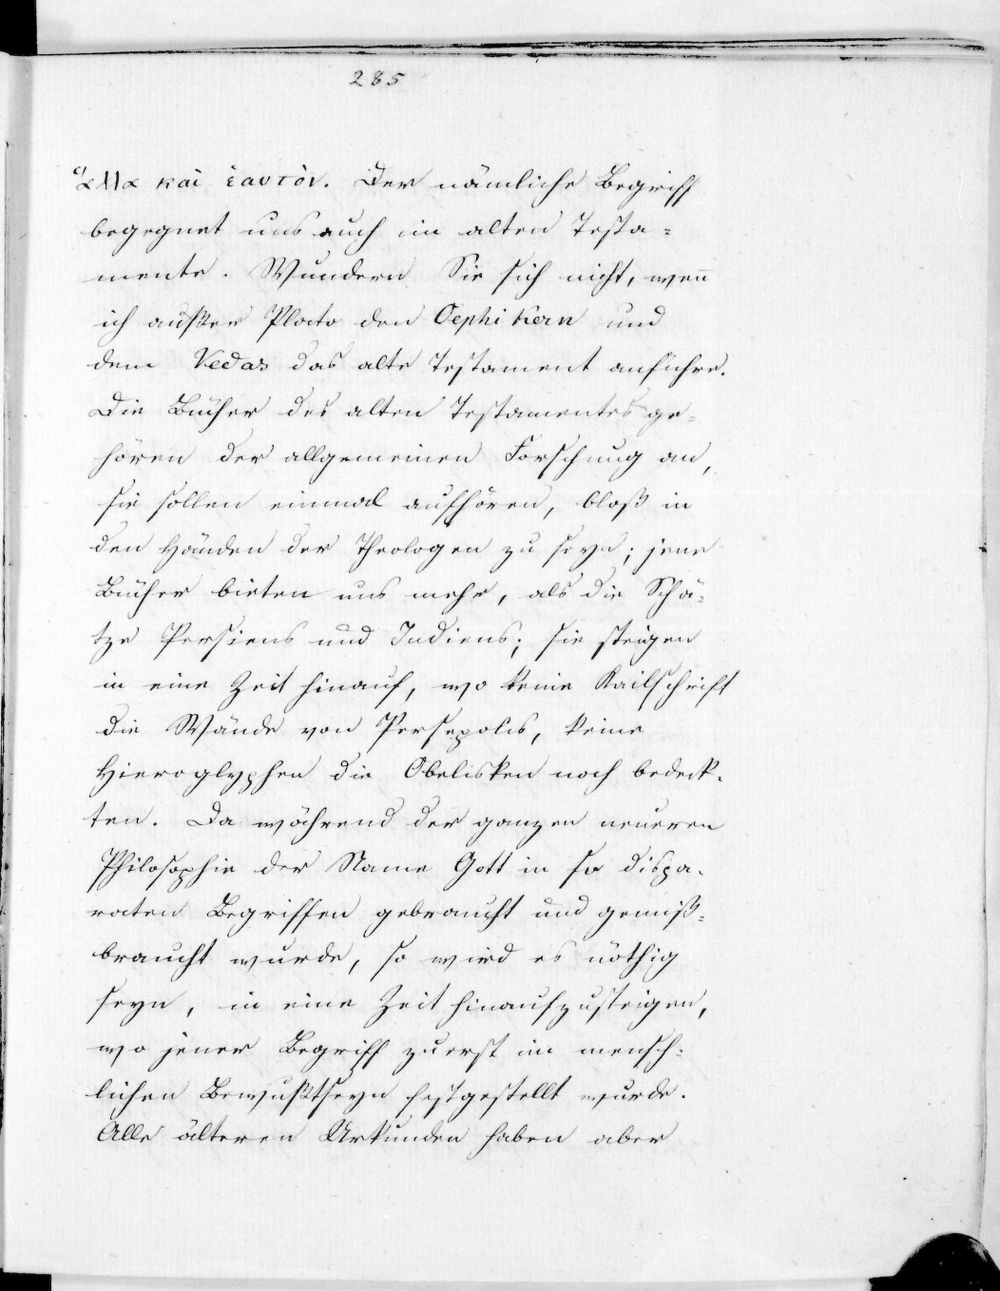 285
ἀλλα καὶ ἑαυτὸν. Der nämliche Begriff
begegnet uns auch im alten Testa=
mente. Wundern Sie sich nicht, weñ
ich außer Plato den Oephikern und
dem Vedas das alte Testament anführe.
Die Bücher des alten Testamentes ge=
hören der allgemeinen Forschung an,
sie sollen einmal aufhören, bloß in
den Händen der Theologen zu seyn; jene
Bücher bieten uns mehr, als die Schä=
tze Persiens und Indiens; sie steigen
in eine Zeit hinauf, wo keine Kailschrift
die Wände von Persepolis, keine
Hieroglyphen die Obelisken noch bedeck=
ten. Da während der ganzen neueren
Philosophie der Name Gott in so dispa=
raten Begriffen gebraucht und gemiß=
braucht wurde, so wird es nöthig
seyn, in eine Zeit hinaufzusteigen,
wo jener Begriff zuerst im mensch=
lichen Bewußtseyn festgestellt wurde.
Alle älteren Urkunden haben aber